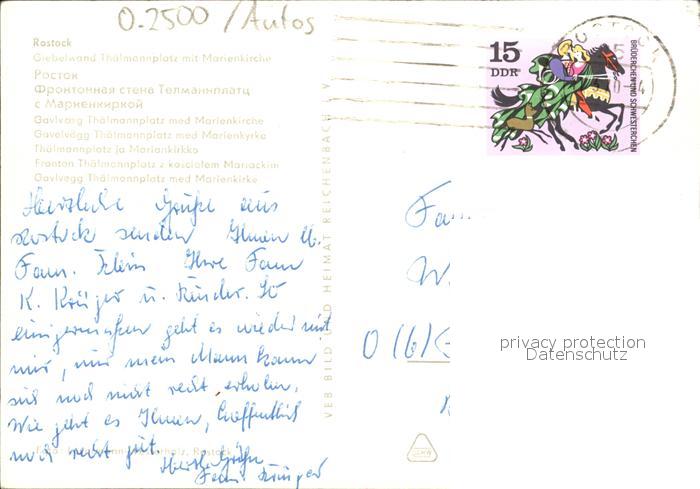 O-2500 / Autos
Rostock
Giebelwand Thälmannplatz mit Marienkirche
Росток
Фронтонная стена Телманнплатц
с Мариенкиркой
Gavlvæg Thälmannplatz med Marienkirche
Gavelvägg Thälmannplatz med Marienkyrka
Thälmannplatz ja Marienkirkko
Fronton Thälmannplatz z kościołem Mariackim
Gavlvegg Thälmannplatz med Marienkirke
Herzliche Grüße aus
Rostock senden Ihnen u.
Fam. Klein Ihre Fam
K. Krüger u. Kinder. So
einigermaßen geht es wieder mit
mir, nur mein Mann kann
sich noch nicht recht erholen.
Wie geht es Ihnen, hoffentlich
noch recht gut.
Herzl. Grüße
Fam. Krüger
VEB BILD UND HEIMAT REICHENBACH I. V.
15
DDR
BRÜDERCHEN UND SCHWESTERCHEN
Fa
W.
O (6)
privacy protection
Datenschutz